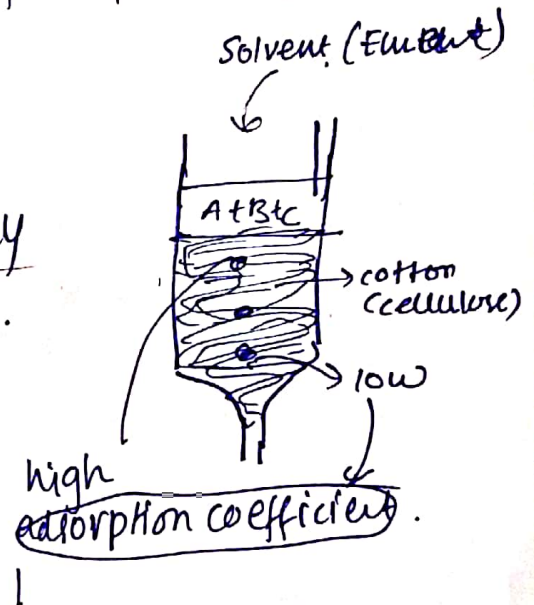 Solvent (Eluent)
A+B+C
y
cotton
(cellulose)
.
low
high
adsorption coefficient.